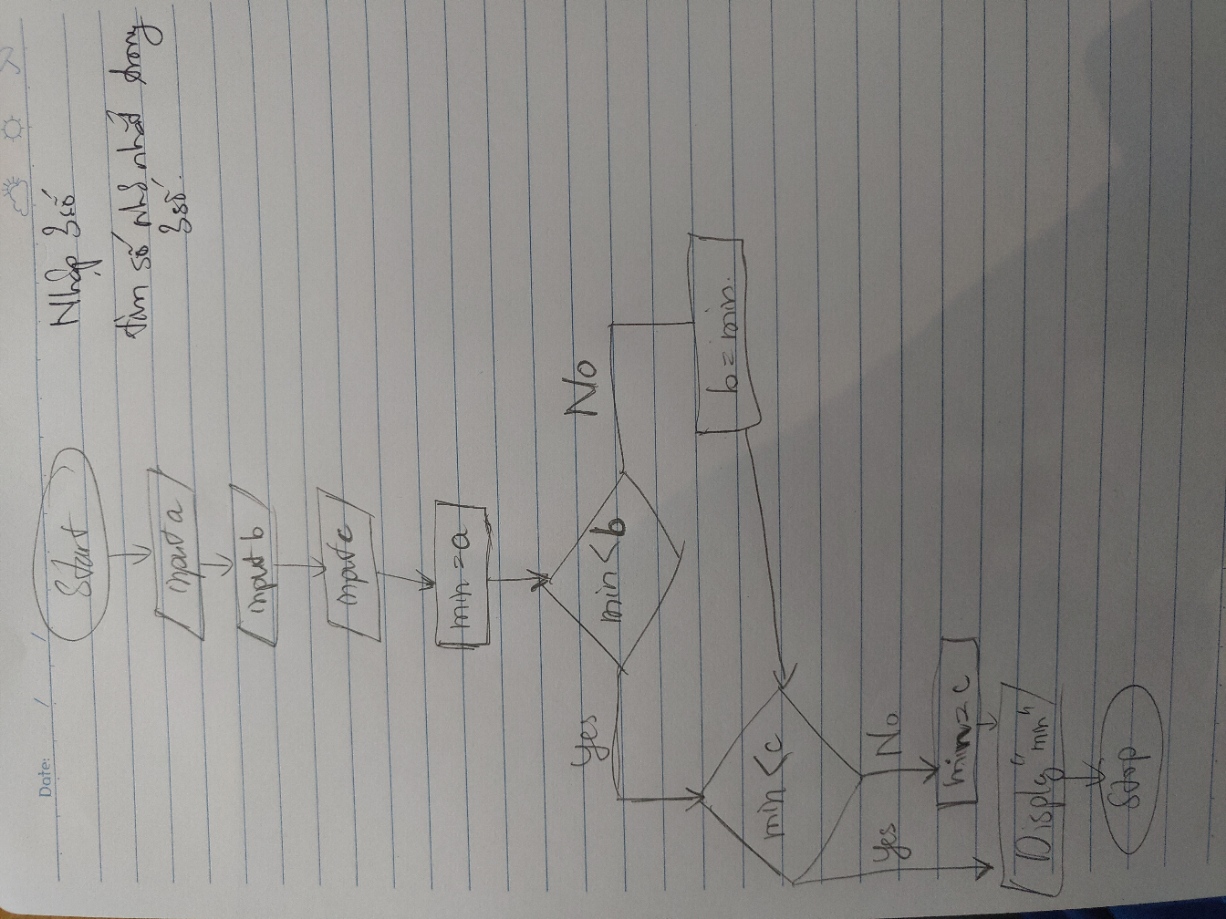 Date: / /
Start
Nhập 3 số
tìm số nhỏ nhất trong
3 số.
input a
input b
input c
min = a
min < b
Yes
No
b = min.
min < c
Yes
No
min = c
Disply "min"
Stop